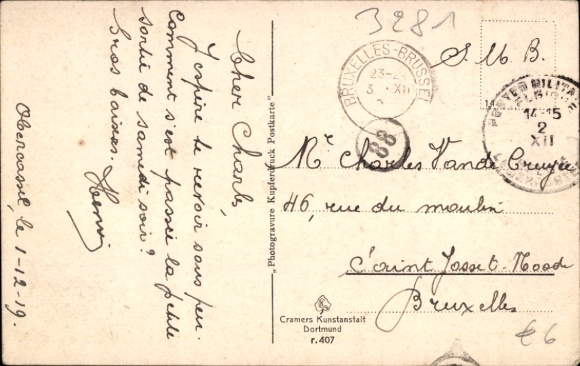 Cher Charles,
J'espère te revoir sous peu.
Comment s'est passée la petite
sortie de samedi soir?
Gros baisers.
Henri
Obercassel, le 1-12-19.
"Photogravure Kupferdruck Postkarte"
3281
S. M. B.
BRUXELLES-BRUSSEL
23-24
3 XII
POSTES MILITAI
BELGIQUE
14-15
2
XII
88
Mr Charles Vande
46, rue du moulin
Saint Josse-t-Noode
Bruxelles
Cramers Kunstanstalt
Dortmund
r. 407
€6